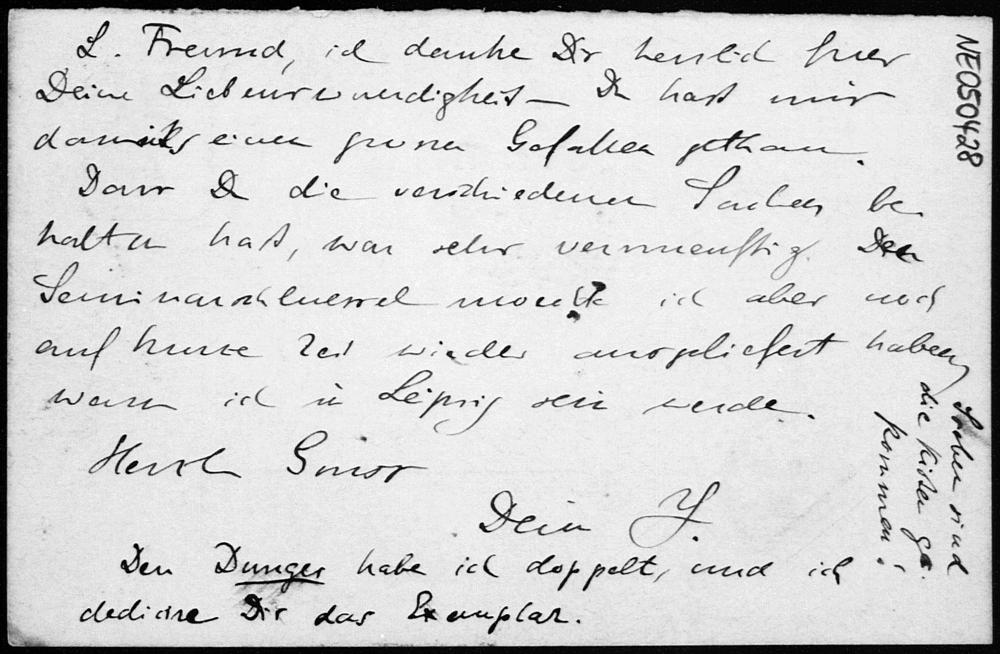 L. Freund, ich danke Dir herzlich fuer
Deine Liebenswuerdigkeit – Du hast mir
damit einen grossen Gefallen gethan.
Dass Du die verschiedenen Sachen be-
halten hast, war sehr vernuenftig. Den
Seminarschluessel moecht ich aber noch
auf kurze Zeit wieder ausgeliefert haben,
wenn ich in Leipzig sein werde.
Herzl. Gruss
Dein Y.
Den Dunger habe ich doppelt, und ich
dedicire Dir das Exemplar.
Soeben sind
die Kisten ge-
kommen!
NE050428